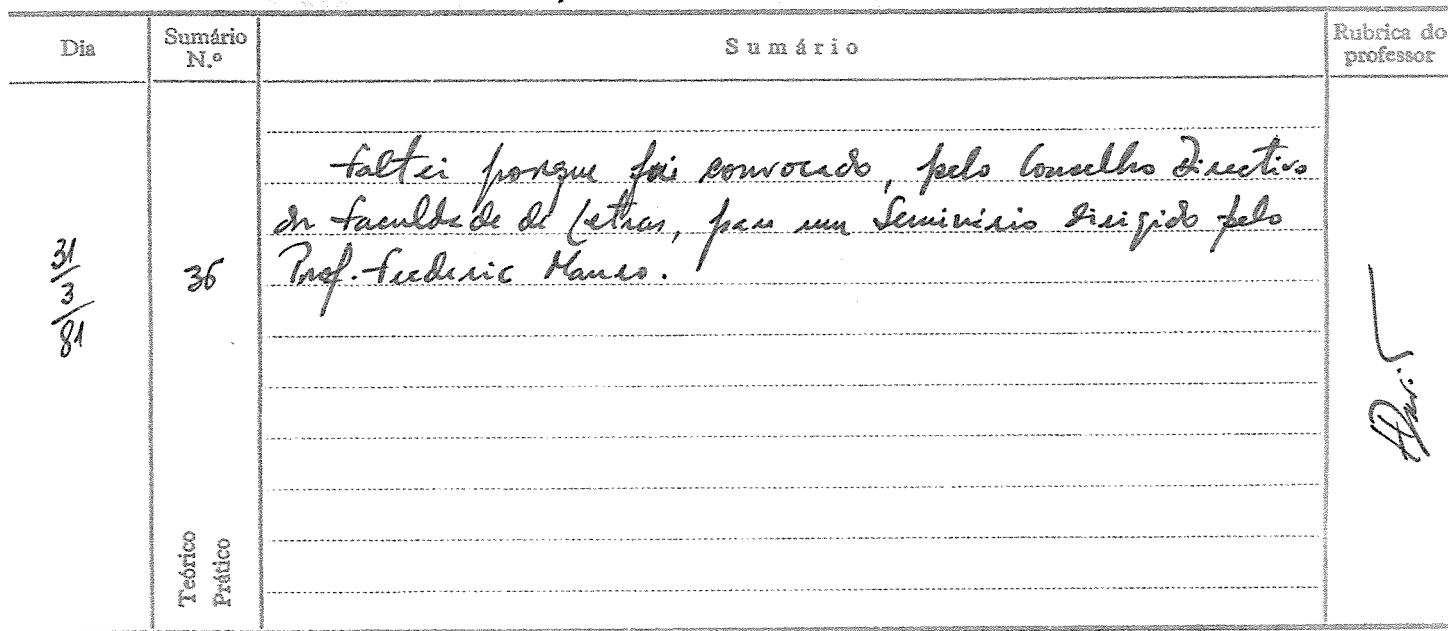 Dia
Sumário N.º
Sumário
Rubrica do professor
31/3/81
36
Faltei porque fui convocado, pelo Conselho Directivo
da Faculdade de Letras, para um Seminário dirigido pelo
Prof. Frederic Mauro.
Teórico
Prático